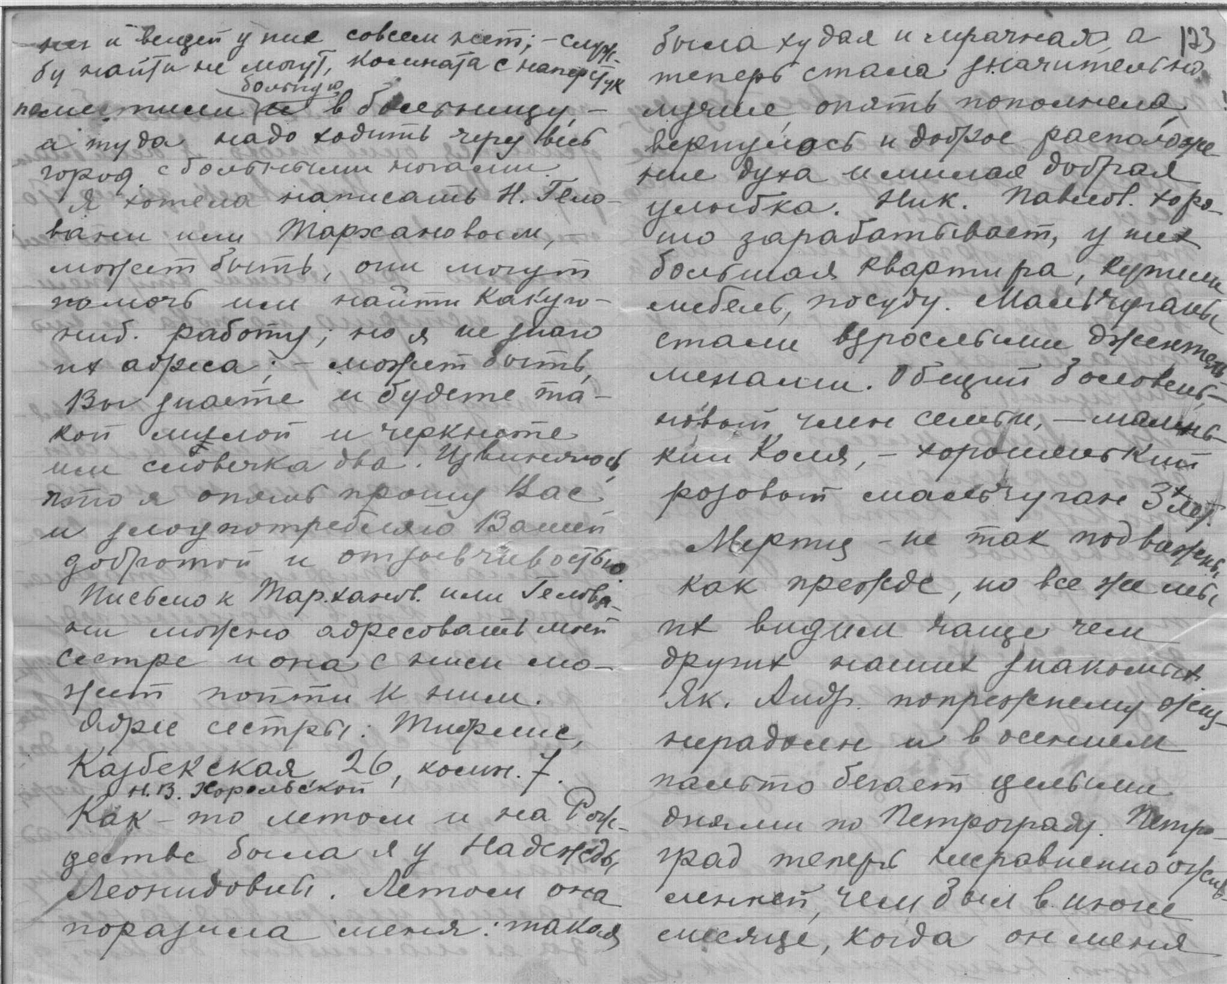 нег и вещей у них совсем нет; – служ-
бу найти не могут, комната с
больную
поместили в больницу, –
а туда надо ходить через весь
город с больными ногами.
Я хотела написать Н. Гело-
вани или Тархановым,
может быть, они могут
помочь им найти какую-
ниб. работу; но я не знаю
их адреса; – может быть,
Вы знаете и будете та-
кой милой и черкнете
им словечка два. Извиняюсь,
что я опять прошу Вас
и злоупотребляю Вашей
добротой и отзывчивостью.
Письмо к Тарханов. или Гелова-
ни можно адресовать моей
сестре и она с ним мо-
жет пойти к ним.
Адрес сестры: Тифлис,
Казбекская 26, комн. 7.
Н.В. Хорольской
Как-то летом и на Рож-
дестве была я у Надежды
Леонидовны. Летом она
поразила меня: такая
123
была худая и мрачная, а
теперь стала значительно
лучше, опять пополнела,
вернулось и доброе расположе
ние духа и милая добрая
улыбка. Ник. Павлов. хоро-
шо зарабатывает, у них
большая квартира, купили
мебель, посуду. Мальчуганы
стали взрослыми джентль
менами. Общий баловень –
новый член семьи, – малень-
кий Коля, – хорошенький
розовый мальчуган 3х лет.
Мертц – не так подважн.
как прежде, но все же мы
их видим чаще чем
других наших знакомых
Як. Андр. попрежнему жиз-
нерадостен и в осеннем
пальто бегает целыми
днями по Петрограду. Петро
град теперь несравненно ожив
леннее, чем был в июне
месяце, когда он меня